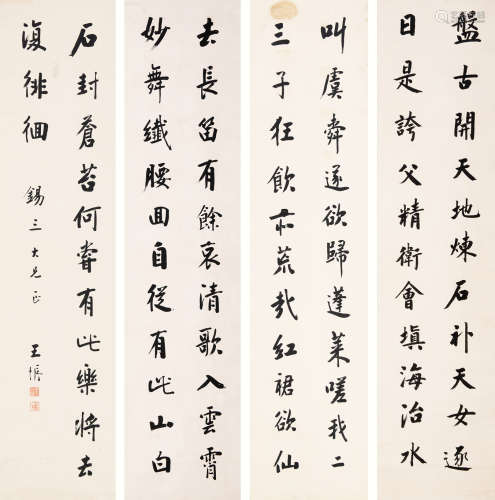 盤古開天地煉石補天女逐
日是誇父精衛會填海治水
叫虞舜遂欲歸蓬萊嗟我二
三子狂飲亦荒哉紅裙欲仙
去長笛有餘哀清歌入雲霄
妙舞纖腰回自從有此山白
石封蒼苔何嘗有此樂將去
復徘徊
錫三大兄正
王